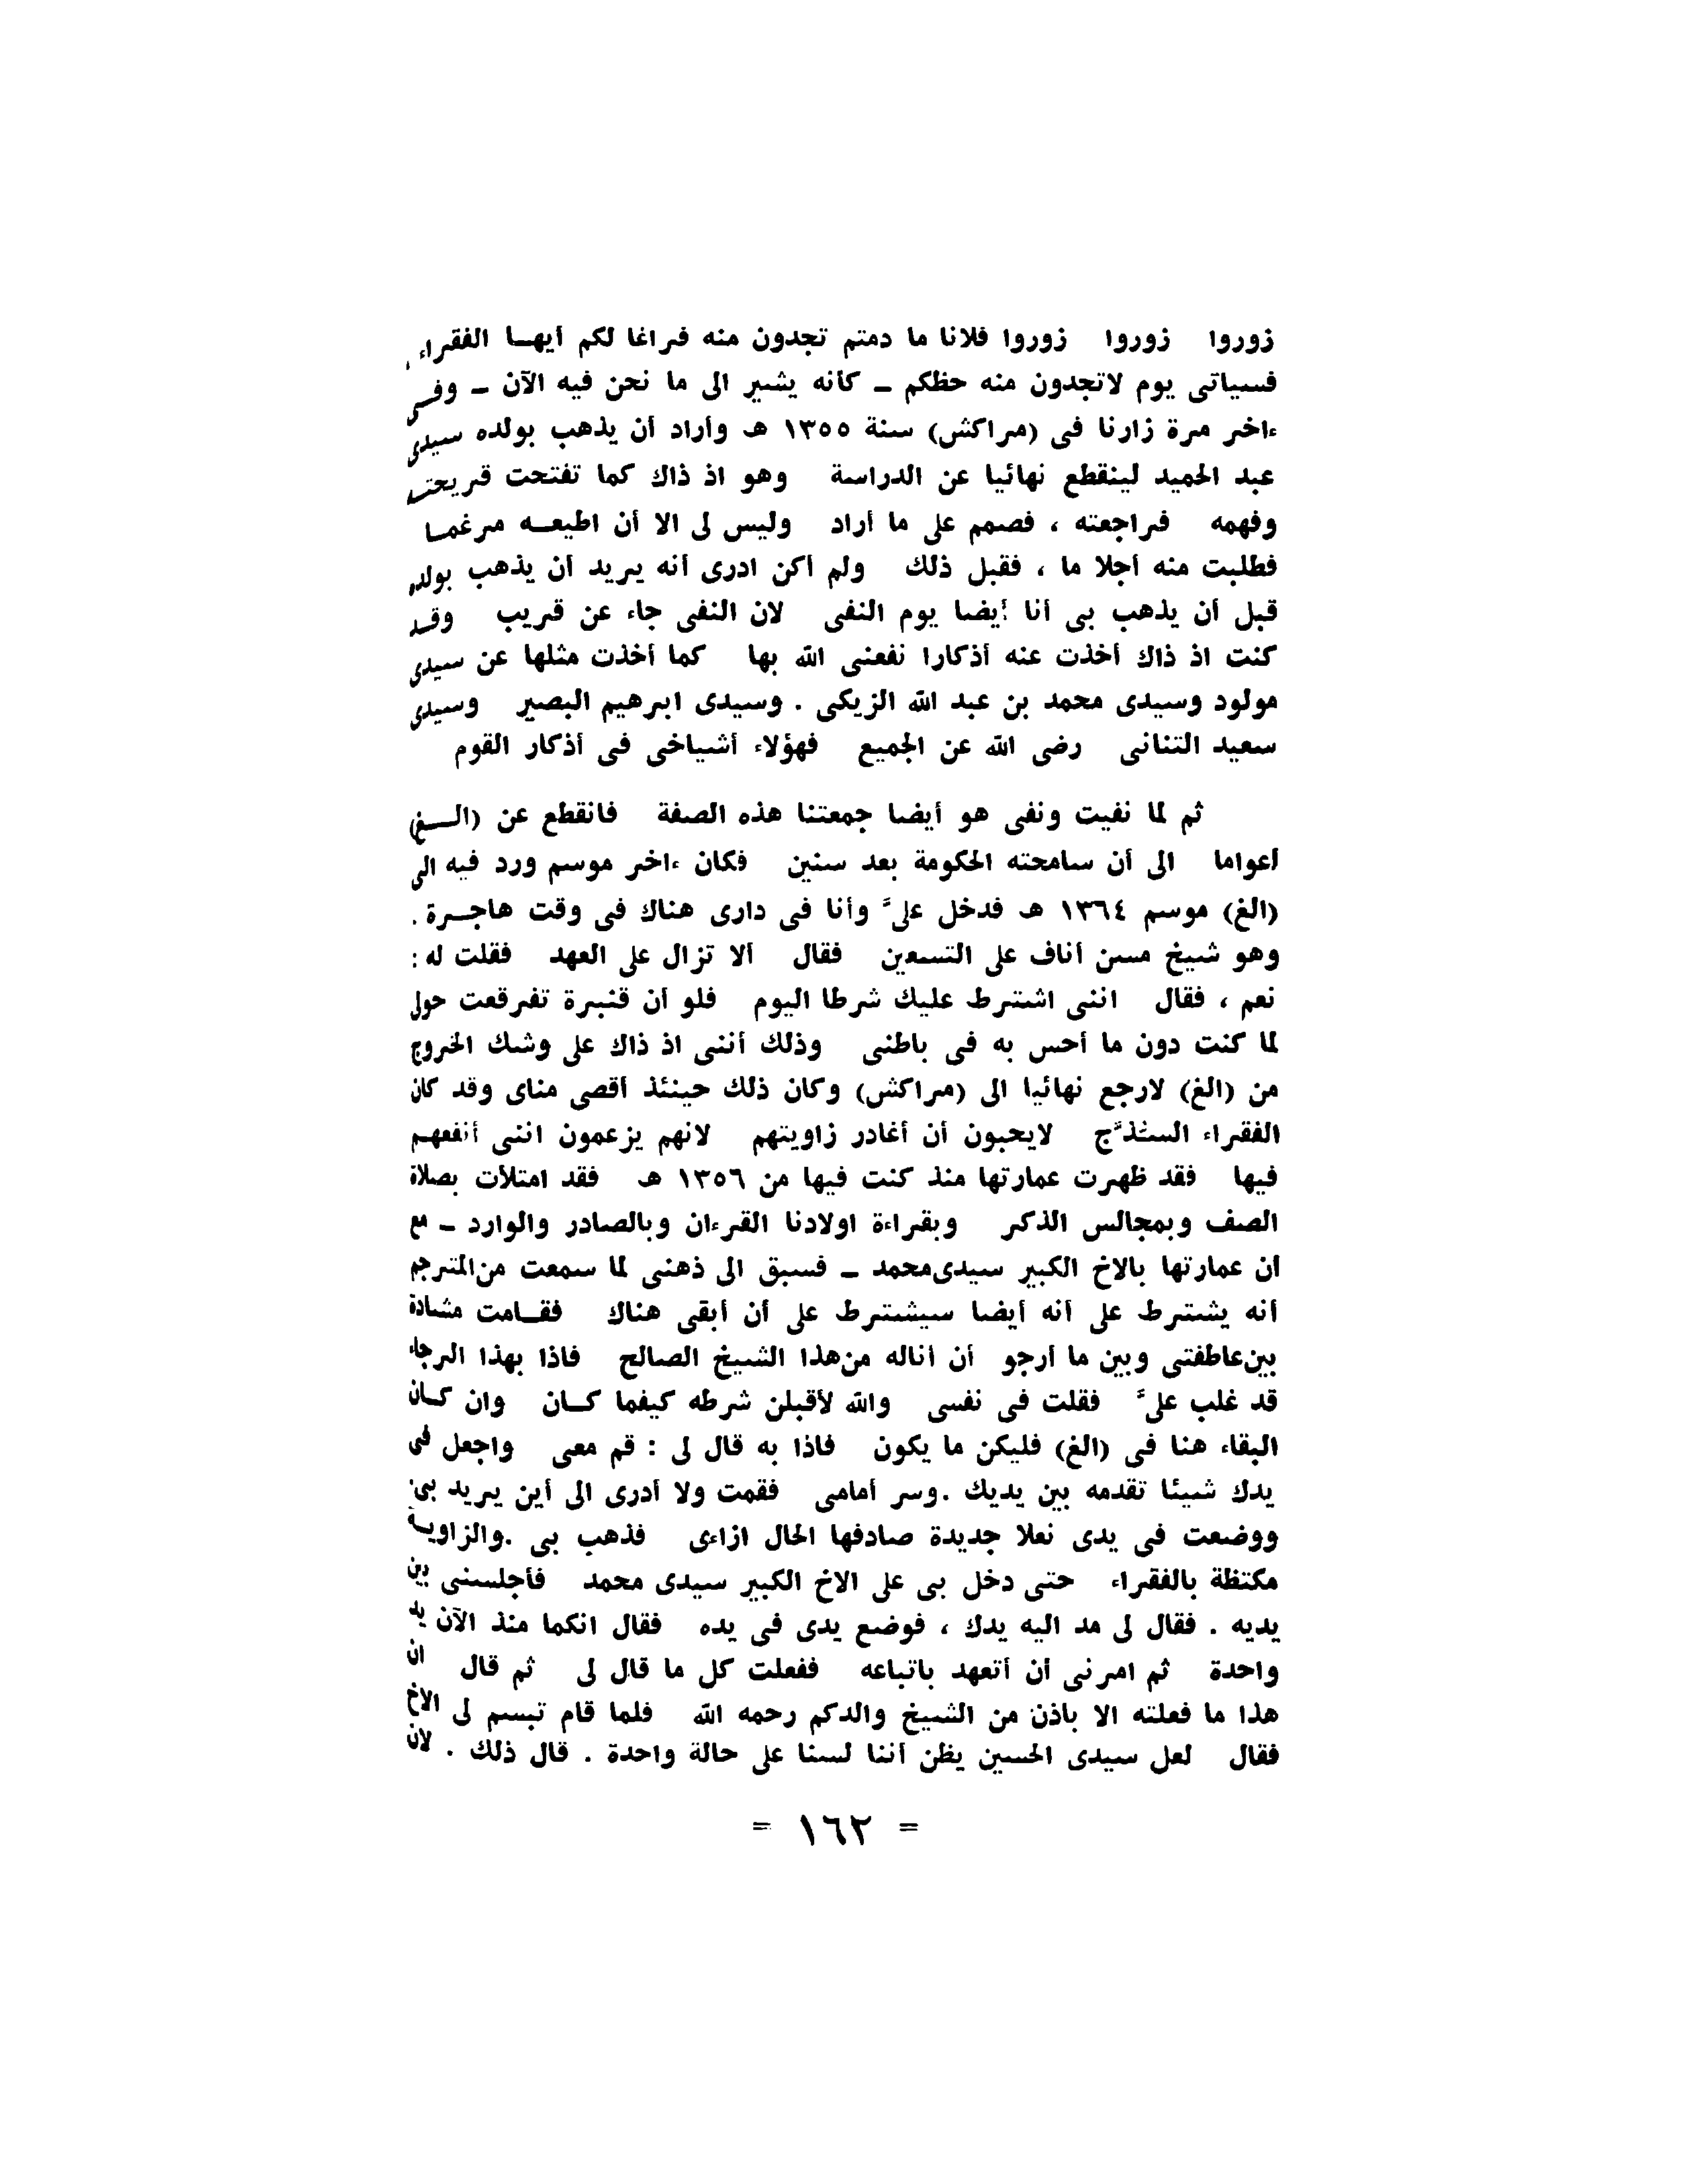 زوروا زوروا زوروا فلانا ما دمتم تجدون منه فراغا لكم أيهـا الفقراء ،
فسياتى يوم لاتجدون منه حظكم – كأنه يشير الى ما نحن فيه الآن – وفـى
ءاخر مرة زارنا فى (مراكش) سنة ١٣٥٥ هـ وأراد أن يذهب بولده سيدى
عبد الحميد لينقطع نهائيا عن الدراسة وهو اذ ذاك كما تفتحت قريحتـه
وفهمه فراجعته ، فصمم على ما أراد وليس لى الا أن اطيعــه مرغمـا
فطلبت منه أجلا ما ، فقبل ذلك ولم أكن ادرى أنه يريد أن يذهب بولده
قبل أن يذهب بى أنا أيضا يوم النفى لان النفى جاء عن قريب وقـد
كنت اذ ذاك أخذت عنه أذكارا نفعنى الله بها كما أخذت مثلها عن سيدى
مولود وسيدى محمد بن عبد الله الزيكى . وسيدى ابرهيم البصير وسيدى
سعيد التنانى رضى الله عن الجميع فهؤلاء أشياخى فى أذكار القوم
ثم لما نفيت ونفى هو أيضا جمعتنا هذه الصفة فانقطع عن (الــغ)
أعواما الى أن سامحته الحكومة بعد سنين فكان ءاخر موسم ورد فيه الى
(الغ) موسم ١٣٦٤ هـ فدخل علىَّ وأنا فى دارى هناك فى وقت هاجـرة .
وهو شيخ مسن أناف على التسعين فقال ألا تزال على العهد فقلت له :
نعم ، فقال اننى اشترط عليك شرطا اليوم فلو أن قنبرة تفرقعت حولى
لما كنت دون ما أحس به فى باطنى وذلك أننى اذ ذاك على وشك الخروج
من (الغ) لارجع نهائيا الى (مراكش) وكان ذلك حينئذ أقصى مناى وقد كان
الفقراء السُذَّج لايحبون أن أغادر زاويتهم لانهم يزعمون اننى أنفعهم
فيها فقد ظهرت عمارتها منذ كنت فيها من ١٣٥٦ هـ فقد امتلأت بصلاة
الصف وبمجالس الذكر وبقراءة اولادنا القرءان وبالصادر والوارد – مع
أن عمارتها بالاخ الكبير سيدى محمد – فسبق الى ذهنى لما سمعت من المترجم
أنه يشترط على أنه أيضا سيشترط على أن أبقى هناك فقـامت مشادة
بين عاطفتى وبين ما أرجو أن أناله من هذا الشيخ الصالح فاذا بهذا الرجاء
قد غلب علىَّ فقلت فى نفسى والله لأقبلن شرطه كيفما كـان وان كـان
البقاء هنا فى (الغ) فليكن ما يكون فاذا به قال لى : قم معى واجعل فى
يدك شيئا تقدمه بين يديك .وسر أمامى فقمت ولا أدرى الى أين يريد بى
ووضعت فى يدى نعلا جديدة صادفها الحال ازاءى فذهب بى .والزاويـة
مكتظة بالفقراء حتى دخل بى على الاخ الكبير سيدى محمد فأجلسنى بين
يديه . فقال لى مد اليه يدك ، فوضع يدى فى يده فقال انكما منذ الآن يد
واحدة ثم امرنى أن أتعهد باتباعه ففعلت كل ما قال لى ثم قال ان
هذا ما فعلته الا باذن من الشيخ والدكم رحمه الله فلما قام تبسم لى الاخ
فقال لعل سيدى الحسين يظن أننا لسنا على حالة واحدة . قال ذلك . لان
= ١٦٢ =